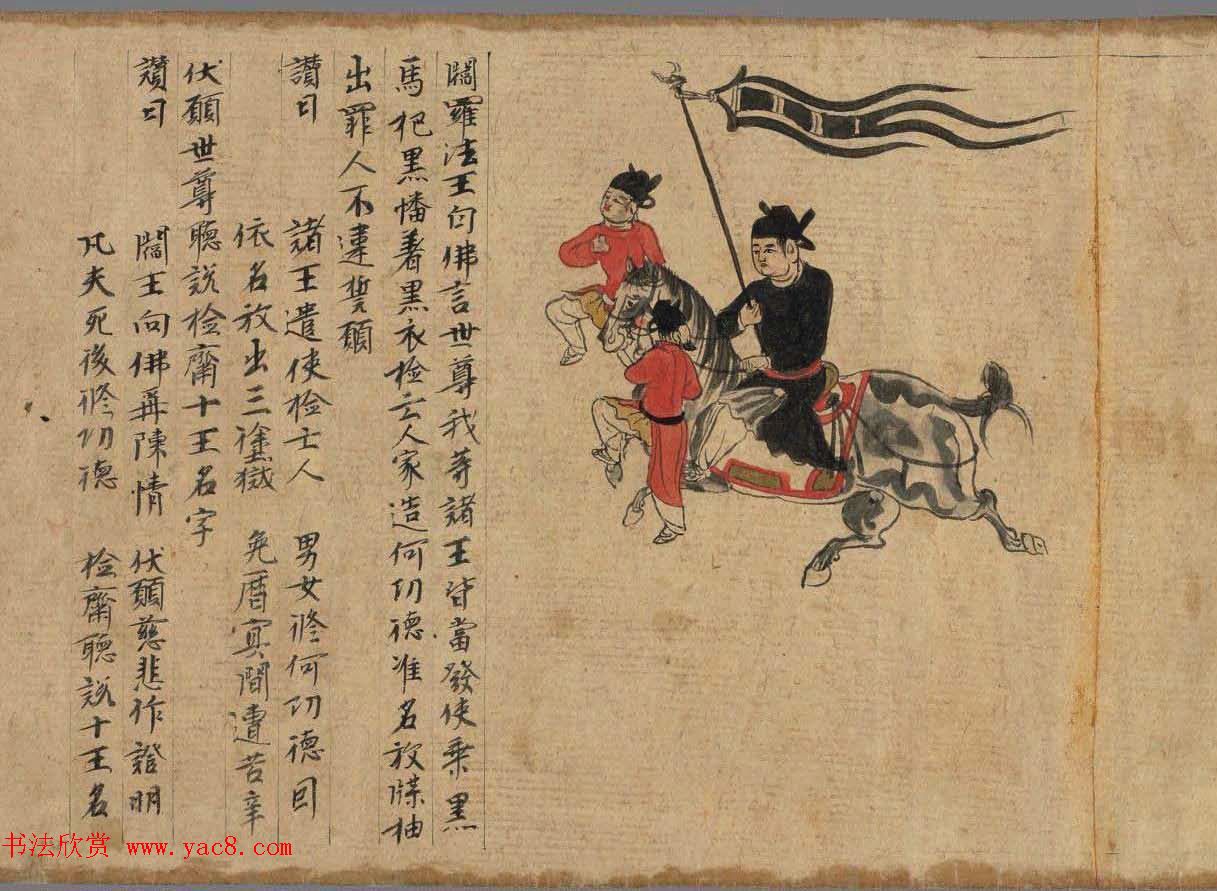 閻羅法王白佛言世尊我等諸王皆當發使乘黑
馬把黑幡著黑衣檢亡人家造何功德准名放牒抽
出罪人不違誓願
讚曰 諸王遣使檢亡人 男女修何功德因
依名放出三塗獄 免曆冥間遭苦辛
伏願世尊聽說檢齋十王名字
讚曰 閻王向佛再陳情 伏願慈悲作證明
凡夫死後修功德 檢齋聽說十王名
书法欣赏 www.yac8.com